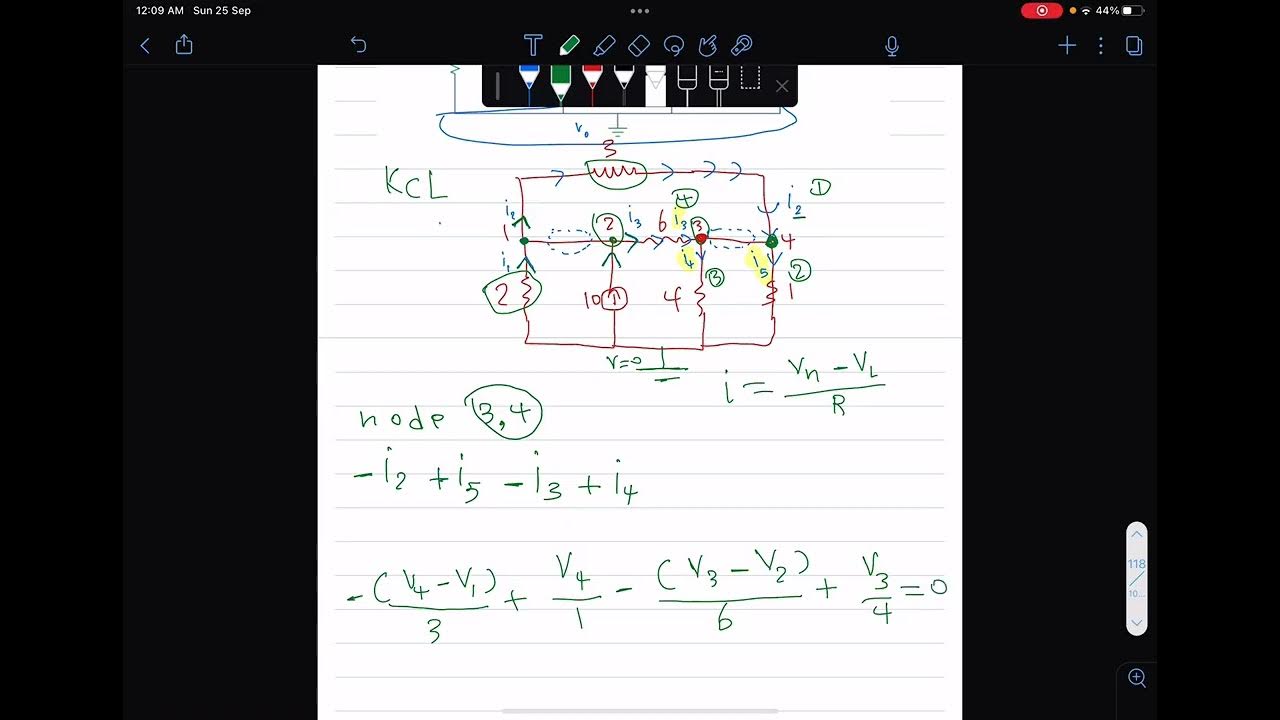 12:09 AM Sun 25 Sep
44%
T
V₀
3
KCL
i₂ D
i₂ 1 2 i₃ 6 4 i₃ 3 4
i₁ i₄ i₅ 2
2 10 4 3 1
V=0
i = (Vn - VL) / R
node 3,4
-i₂ + i₅ - i₃ + i₄
-(V₄-V₁)/3 + V₄/1 - (V₃-V₂)/6 + V₃/4 = 0
118
10...